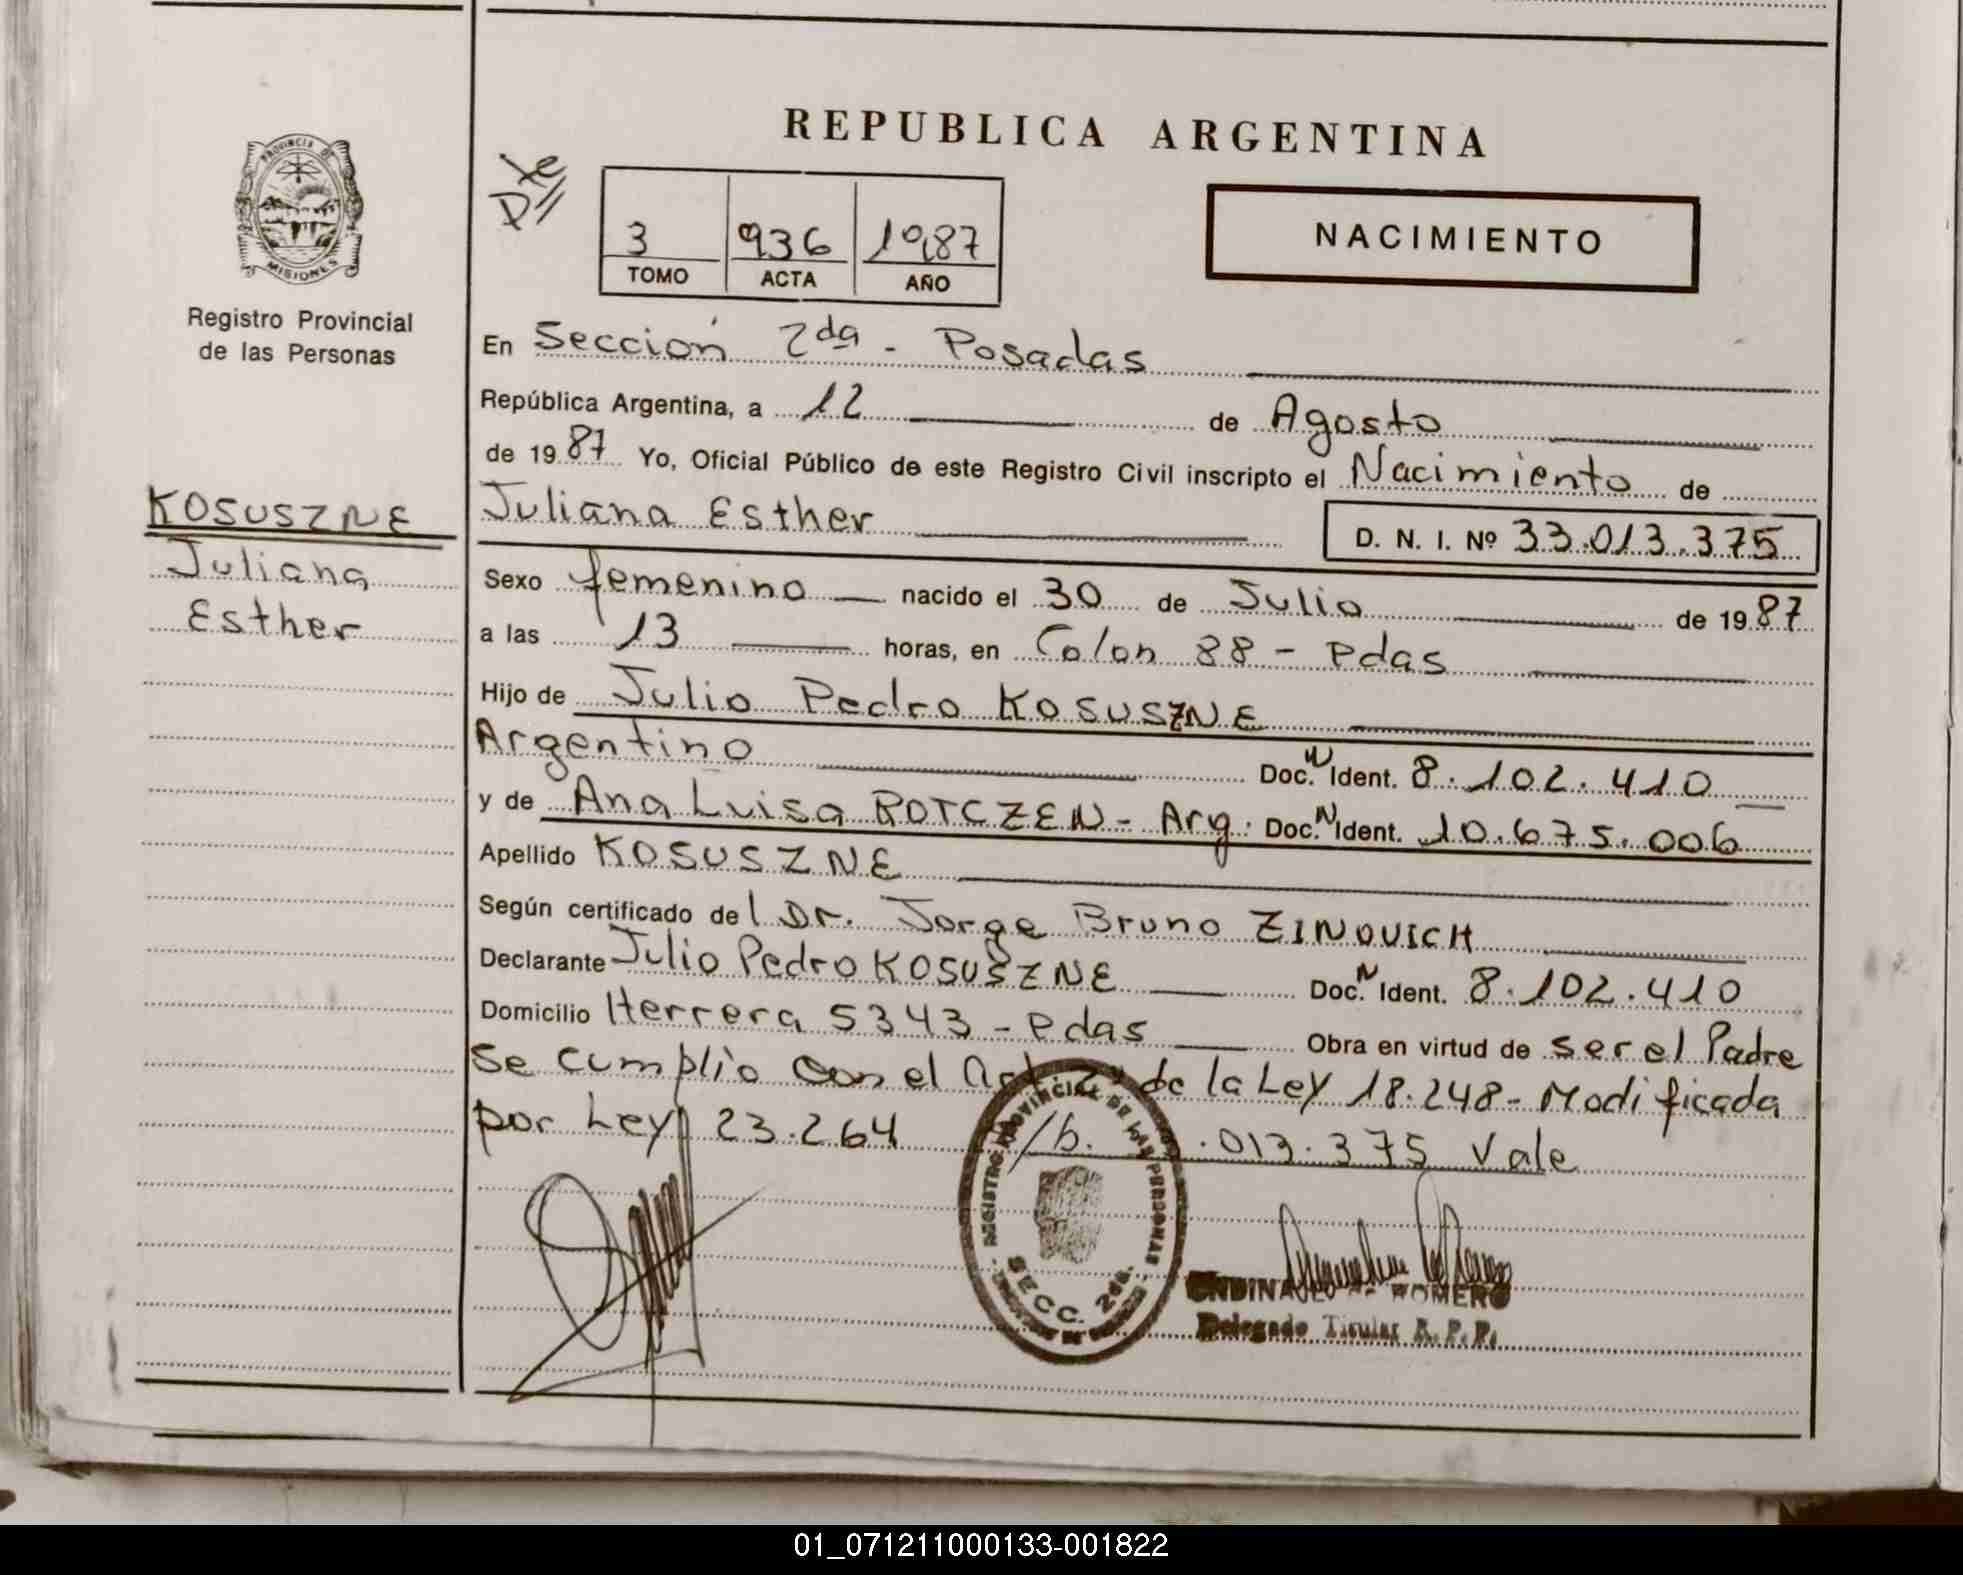 REPUBLICA ARGENTINA
Dte
3 936 1987
TOMO ACTA AÑO
NACIMIENTO
PROVINCIA DE MISIONES
Registro Provincial
de las Personas
KOSUSZNE
Juliana
Esther
En Sección 2da - Posadas
República Argentina, a 12 de Agosto
de 1987 Yo, Oficial Público de este Registro Civil inscripto el Nacimiento de
Juliana Esther D. N. I. Nº 33.013.375
Sexo femenino nacido el 30 de Julio de 1987
a las 13 horas, en Colon 88 - Pdas
Hijo de Julio Pedro KOSUSZNE
Argentino Doc. N Ident. 8.102.410
y de Ana Luisa ROTCZEN - Arg. Doc. N Ident. 10.675.006
Apellido KOSUSZNE
Según certificado del Dr. Jorge Bruno ZINOVICH
Declarante Julio Pedro KOSUSZNE Doc. N Ident. 8.102.410
Domicilio Herrera 5343 - Pdas Obra en virtud de ser el Padre
Se cumplio con el Art. 2º de la Ley 18.248 - Modificada
por Ley 23.264 /b. .013.375 Vale
REGISTRO PROVINCIAL DE LAS PERSONAS
SECC. 2da.
ROMERO
Delegado Titular R. P. P.
01_071211000133-001822